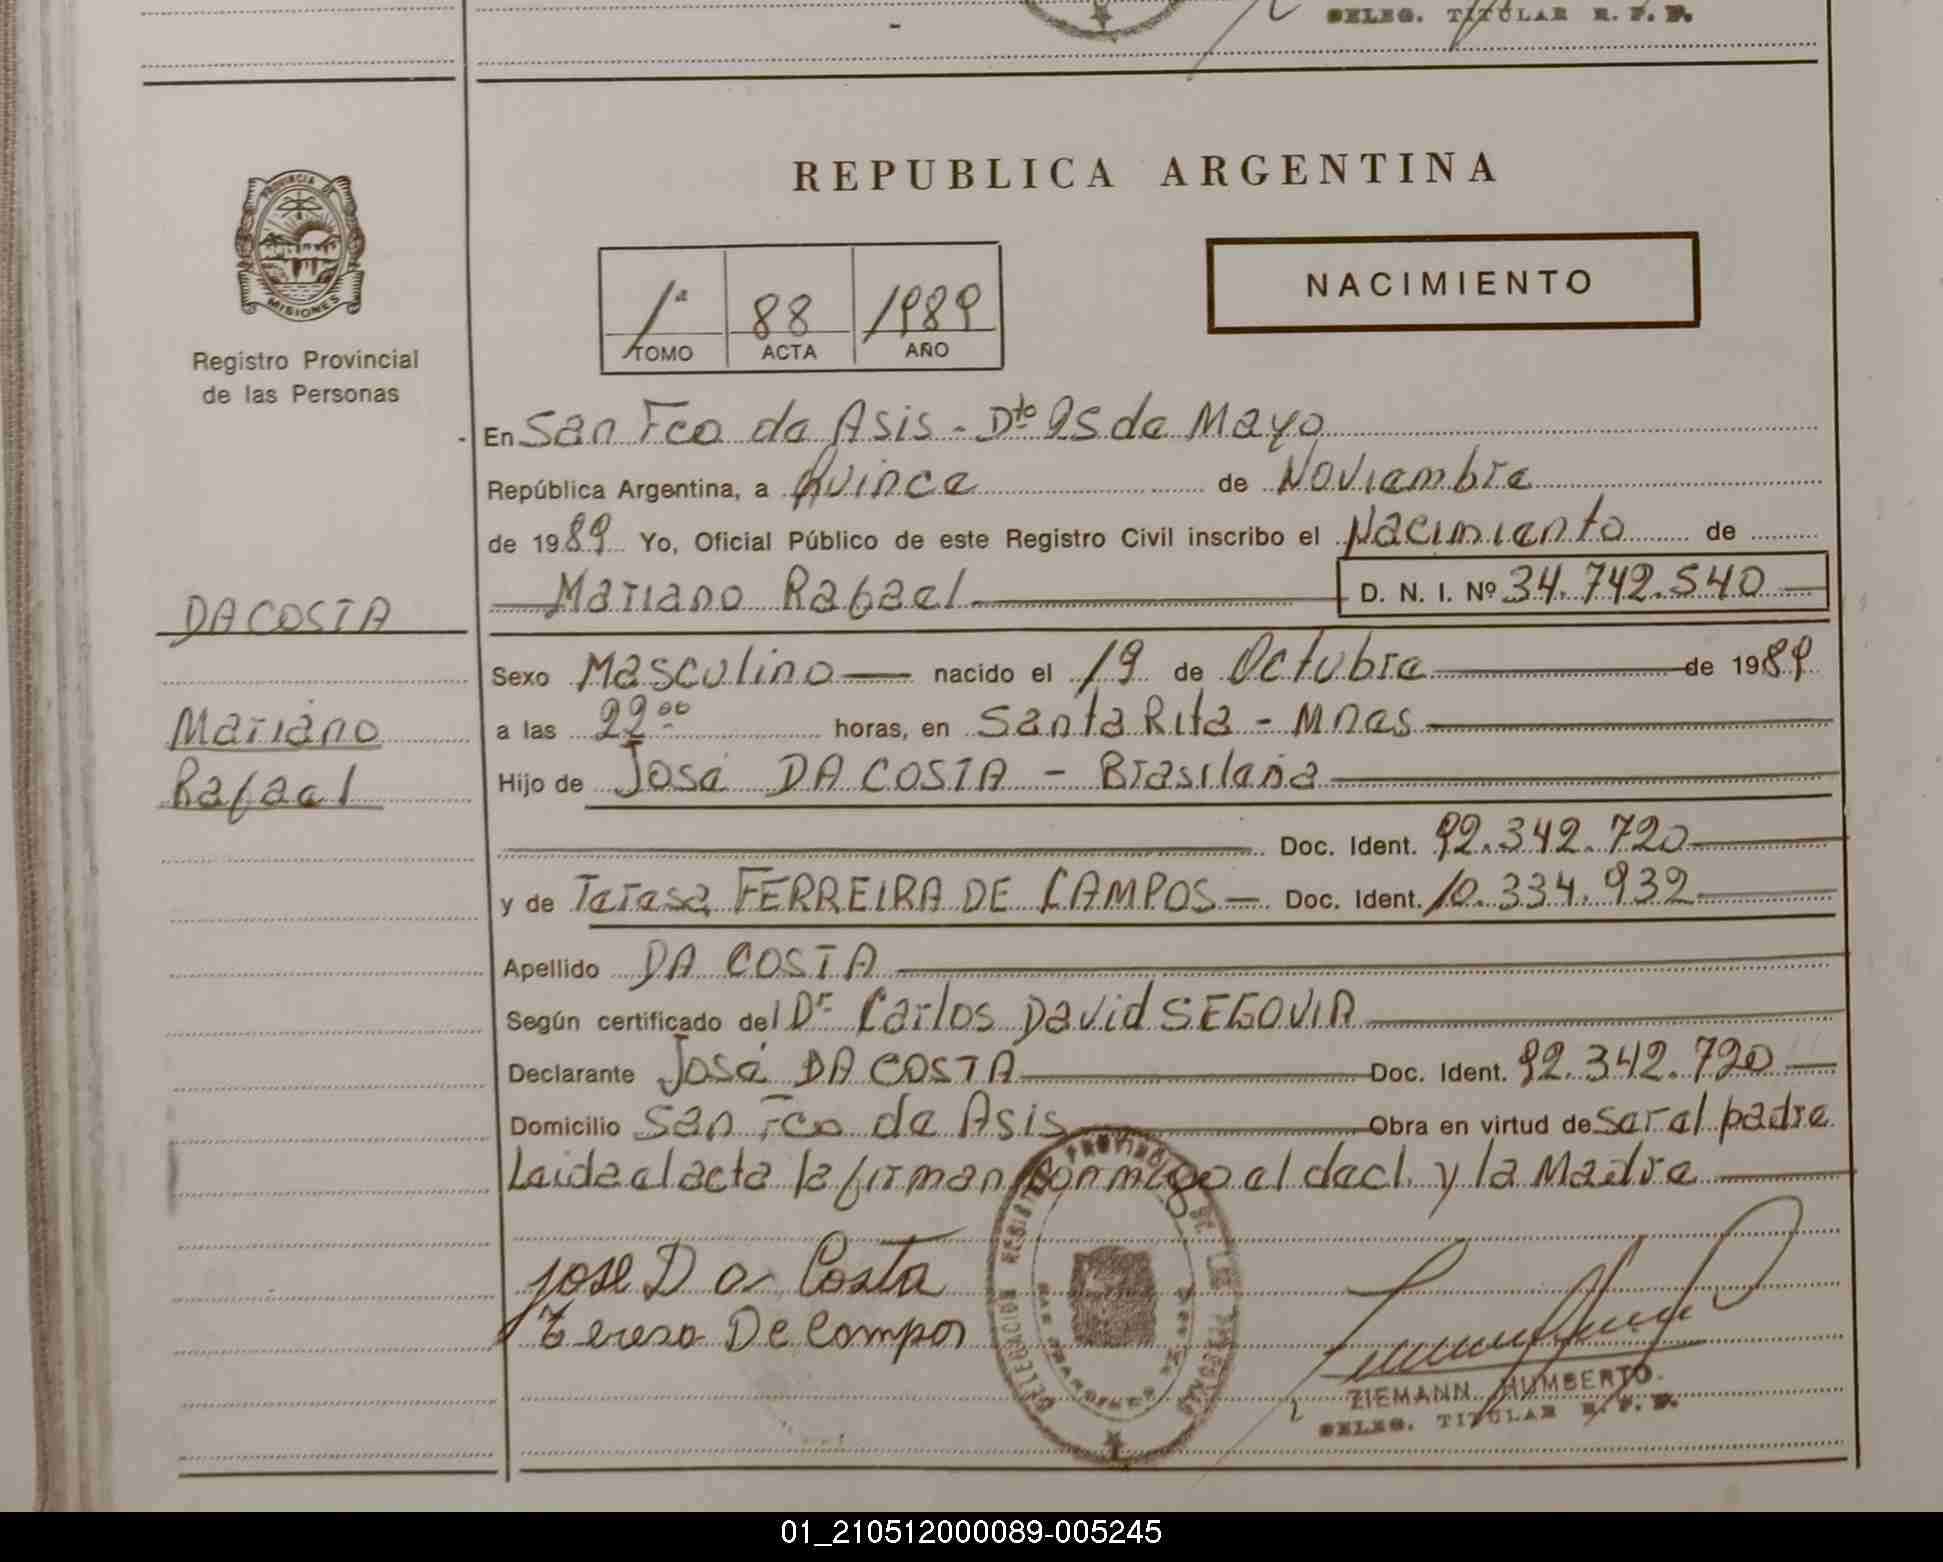 DELEG. TITULAR R. P. P.
PROVINCIA DE
MISIONES
Registro Provincial
de las Personas
REPUBLICA ARGENTINA
NACIMIENTO
1ª 88 1989
TOMO ACTA AÑO
En San Fco de Asis - Dto 25 de Mayo
República Argentina, a Quince de Noviembre
de 1989 Yo, Oficial Público de este Registro Civil inscribo el Nacimiento de
Mariano Rafael D. N. I. Nº 34.742.540
DA COSTA
Mariano
Rafael
Sexo Masculino nacido el 19 de Octubre de 1989
a las 22⁰⁰ horas, en Santa Rita - Mnes
Hijo de José DA COSTA - Brasileña
Doc. Ident. 92.342.720
y de Teresa FERREIRA DE CAMPOS Doc. Ident. 10.334.932
Apellido DA COSTA
Según certificado del Dr Carlos David SEGOVIA
Declarante José DA COSTA Doc. Ident. 92.342.720
Domicilio San Fco de Asis Obra en virtud de ser el padre
Leida el acta la firman conmigo el decl. y la Madre
jose Da Costa
Teresa De Campos
DELEGACION REGISTRO PROVINCIAL DE LAS PERSONAS
ZIEMANN HUMBERTO
DELEG. TITULAR R. P. P.
01_210512000089-005245